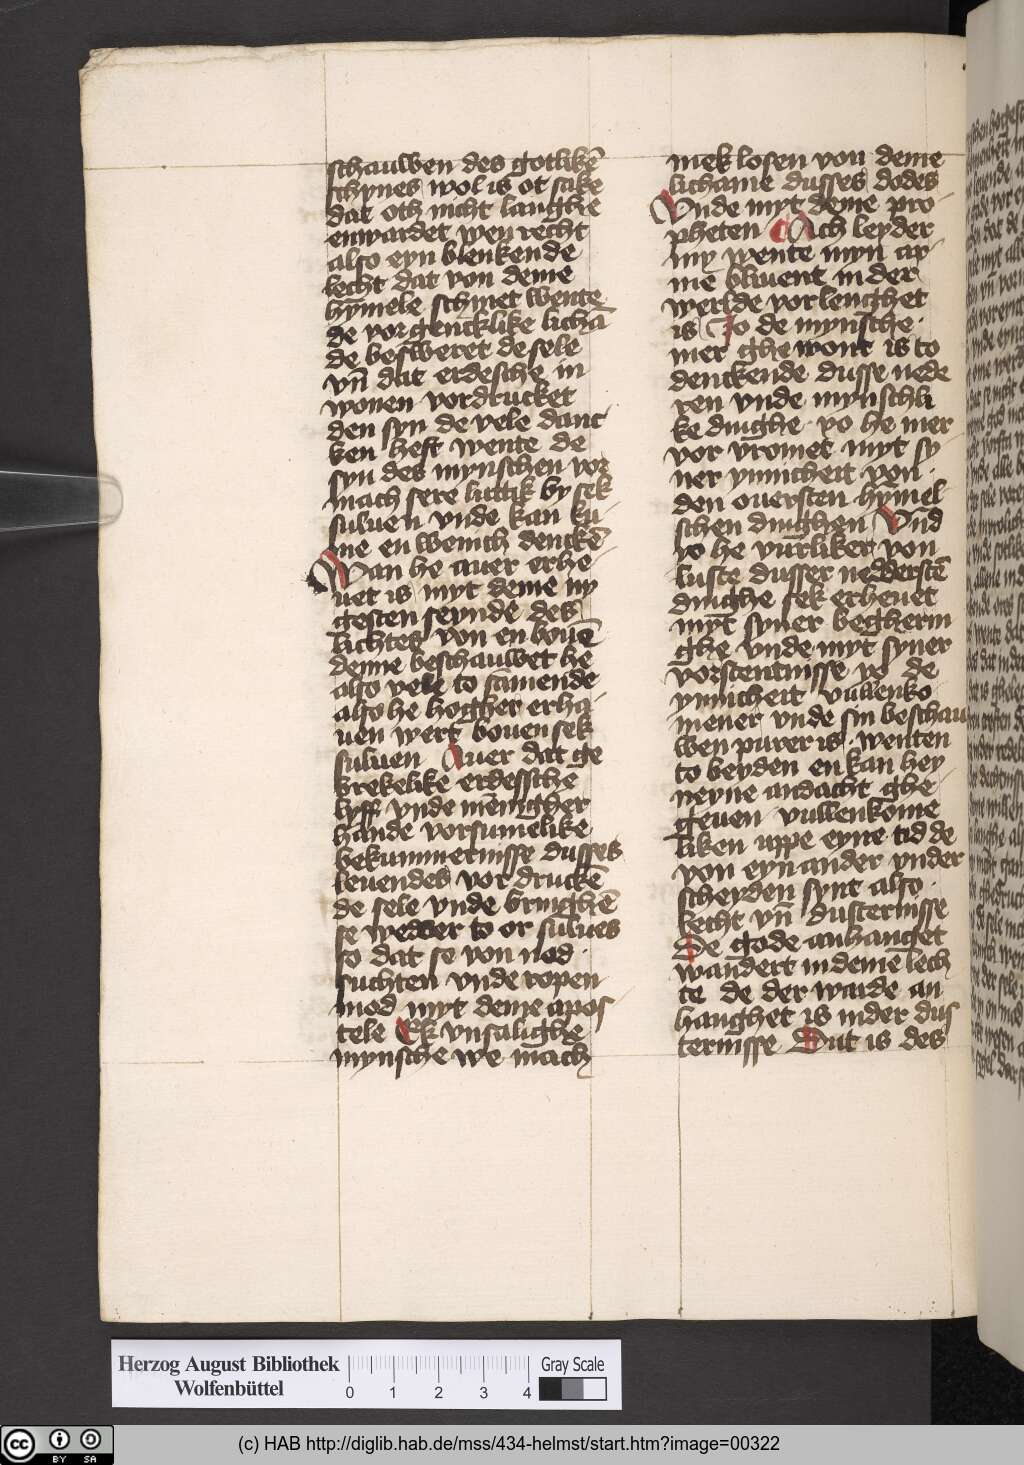 schauwen des gotlikē
schynes wol is ot sake
dat och nicht langhe
enwardet wen recht
also eyn blenkende
lecht dat von deme
hymele schynet wente
de vorgencklike lichā
de besweret de sele
vn̄ dat erdesche in
wonen vordrucket
den syn de vele danc
ken heft wente de
syn des mynschen vor
mach sere luttik by sek
suluen vnde kan ku
me en wenich denckē
Wan he auer erhe
uet is myt deme ny
gesten seynde des
lichtes von en bouē
denne beschauwet he
also vele to samende
also he hogher erha
uen wert bouen sek
suluen Auer dat ge
brekelike erdessche
lyff vnde mēnigher
hande vorsumelike
bekummernisse dusses
leuendes vordruckē
de sele vnde bringhē
se wedder to or sulues
so dat se von nod
suchten vnde ropen
mod myt deme apos
tele Ek vnsalighe
mynsche we mach
mek losen von deme
lichame dusses dodes
Vnde myt deme pro
pheten Ach leyder
my wente myn ar
me bliuent in der
werlde vorlenghet
is Jo de mynsche
mer ghewont is to
denckende dusse nede
ren vnde mynschli
ke dinghe yo he mer
vor vromet myt sy
ner ynnicheit von
den ouersten hymel
schen dinghen Vnd
yo he vurliker von
luste dusser nedderstē
dinghe sek erheuet
myt syner begherin
ghe vnde myt syner
vorstentnisse yo de
ynnicheit vullenko
mener vnde sin beschau
wen purer is wenten
to beyden en kan hey
neyne andacht ghe
geuen vullenkome
liken uppe eyne tid de
von eyn ander vnder
scheyden synt also
lecht vn̄ dusternisse
De gode anhanget
wandert in deme lech
te de der warde an
hanghet is in der dus
ternisse Dut is des
Herzog August Bibliothek
Wolfenbüttel
0 1 2 3 4
Gray Scale
cc BY SA
(c) HAB http://diglib.hab.de/mss/434-helmst/start.htm?image=00322